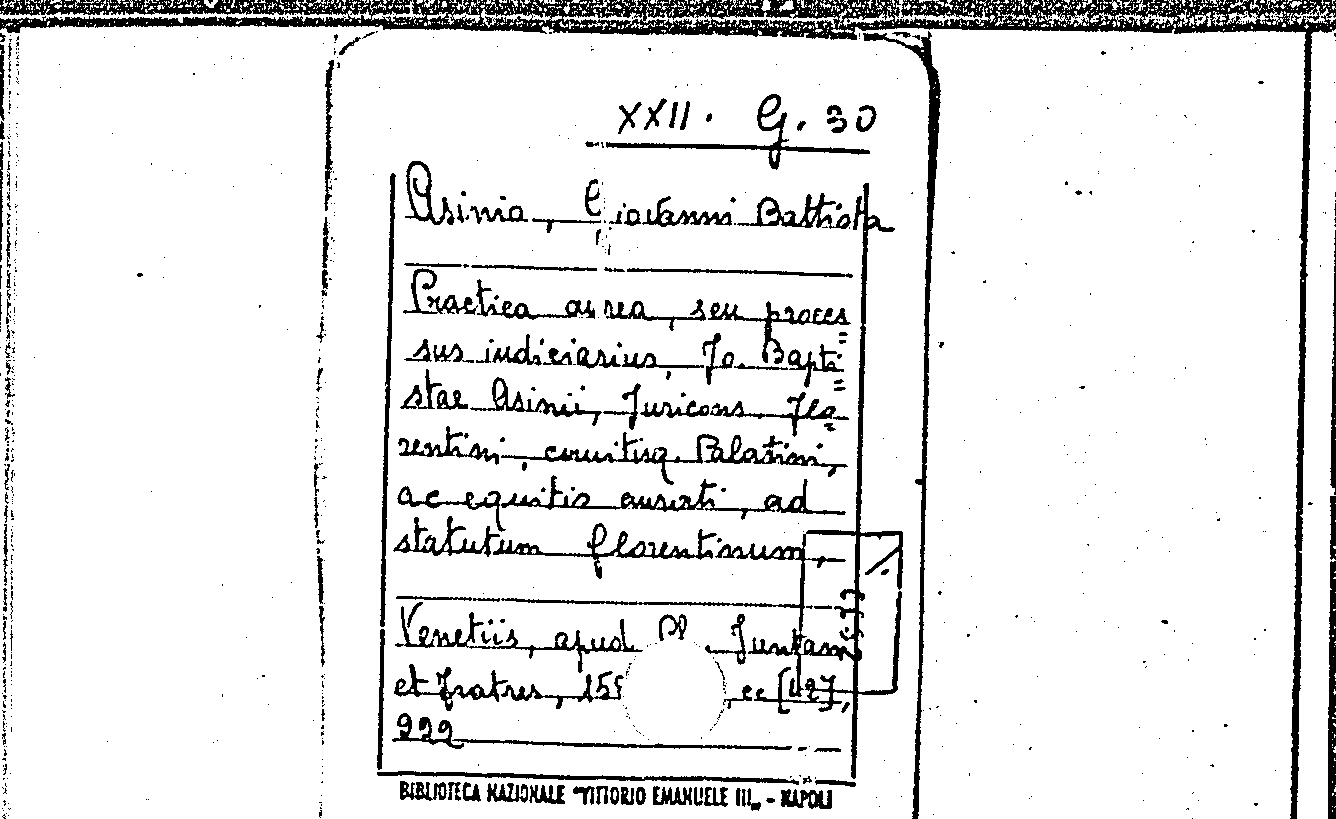 XXII. G. 30
Asinio, Giovanni Battista
Practica aurea, seu proces=
sus iudiciarius, Jo. Bapti=
stae Asinii, Juricons. Flo=
rentini, comitisq. Palatini,
ac equitis aurati, ad
statutum florentinum,
Venetiis, apud Juntam
et fratres, cc [42],
922
BIBLIOTECA NAZIONALE "VITTORIO EMANUELE III„ - NAPOLI